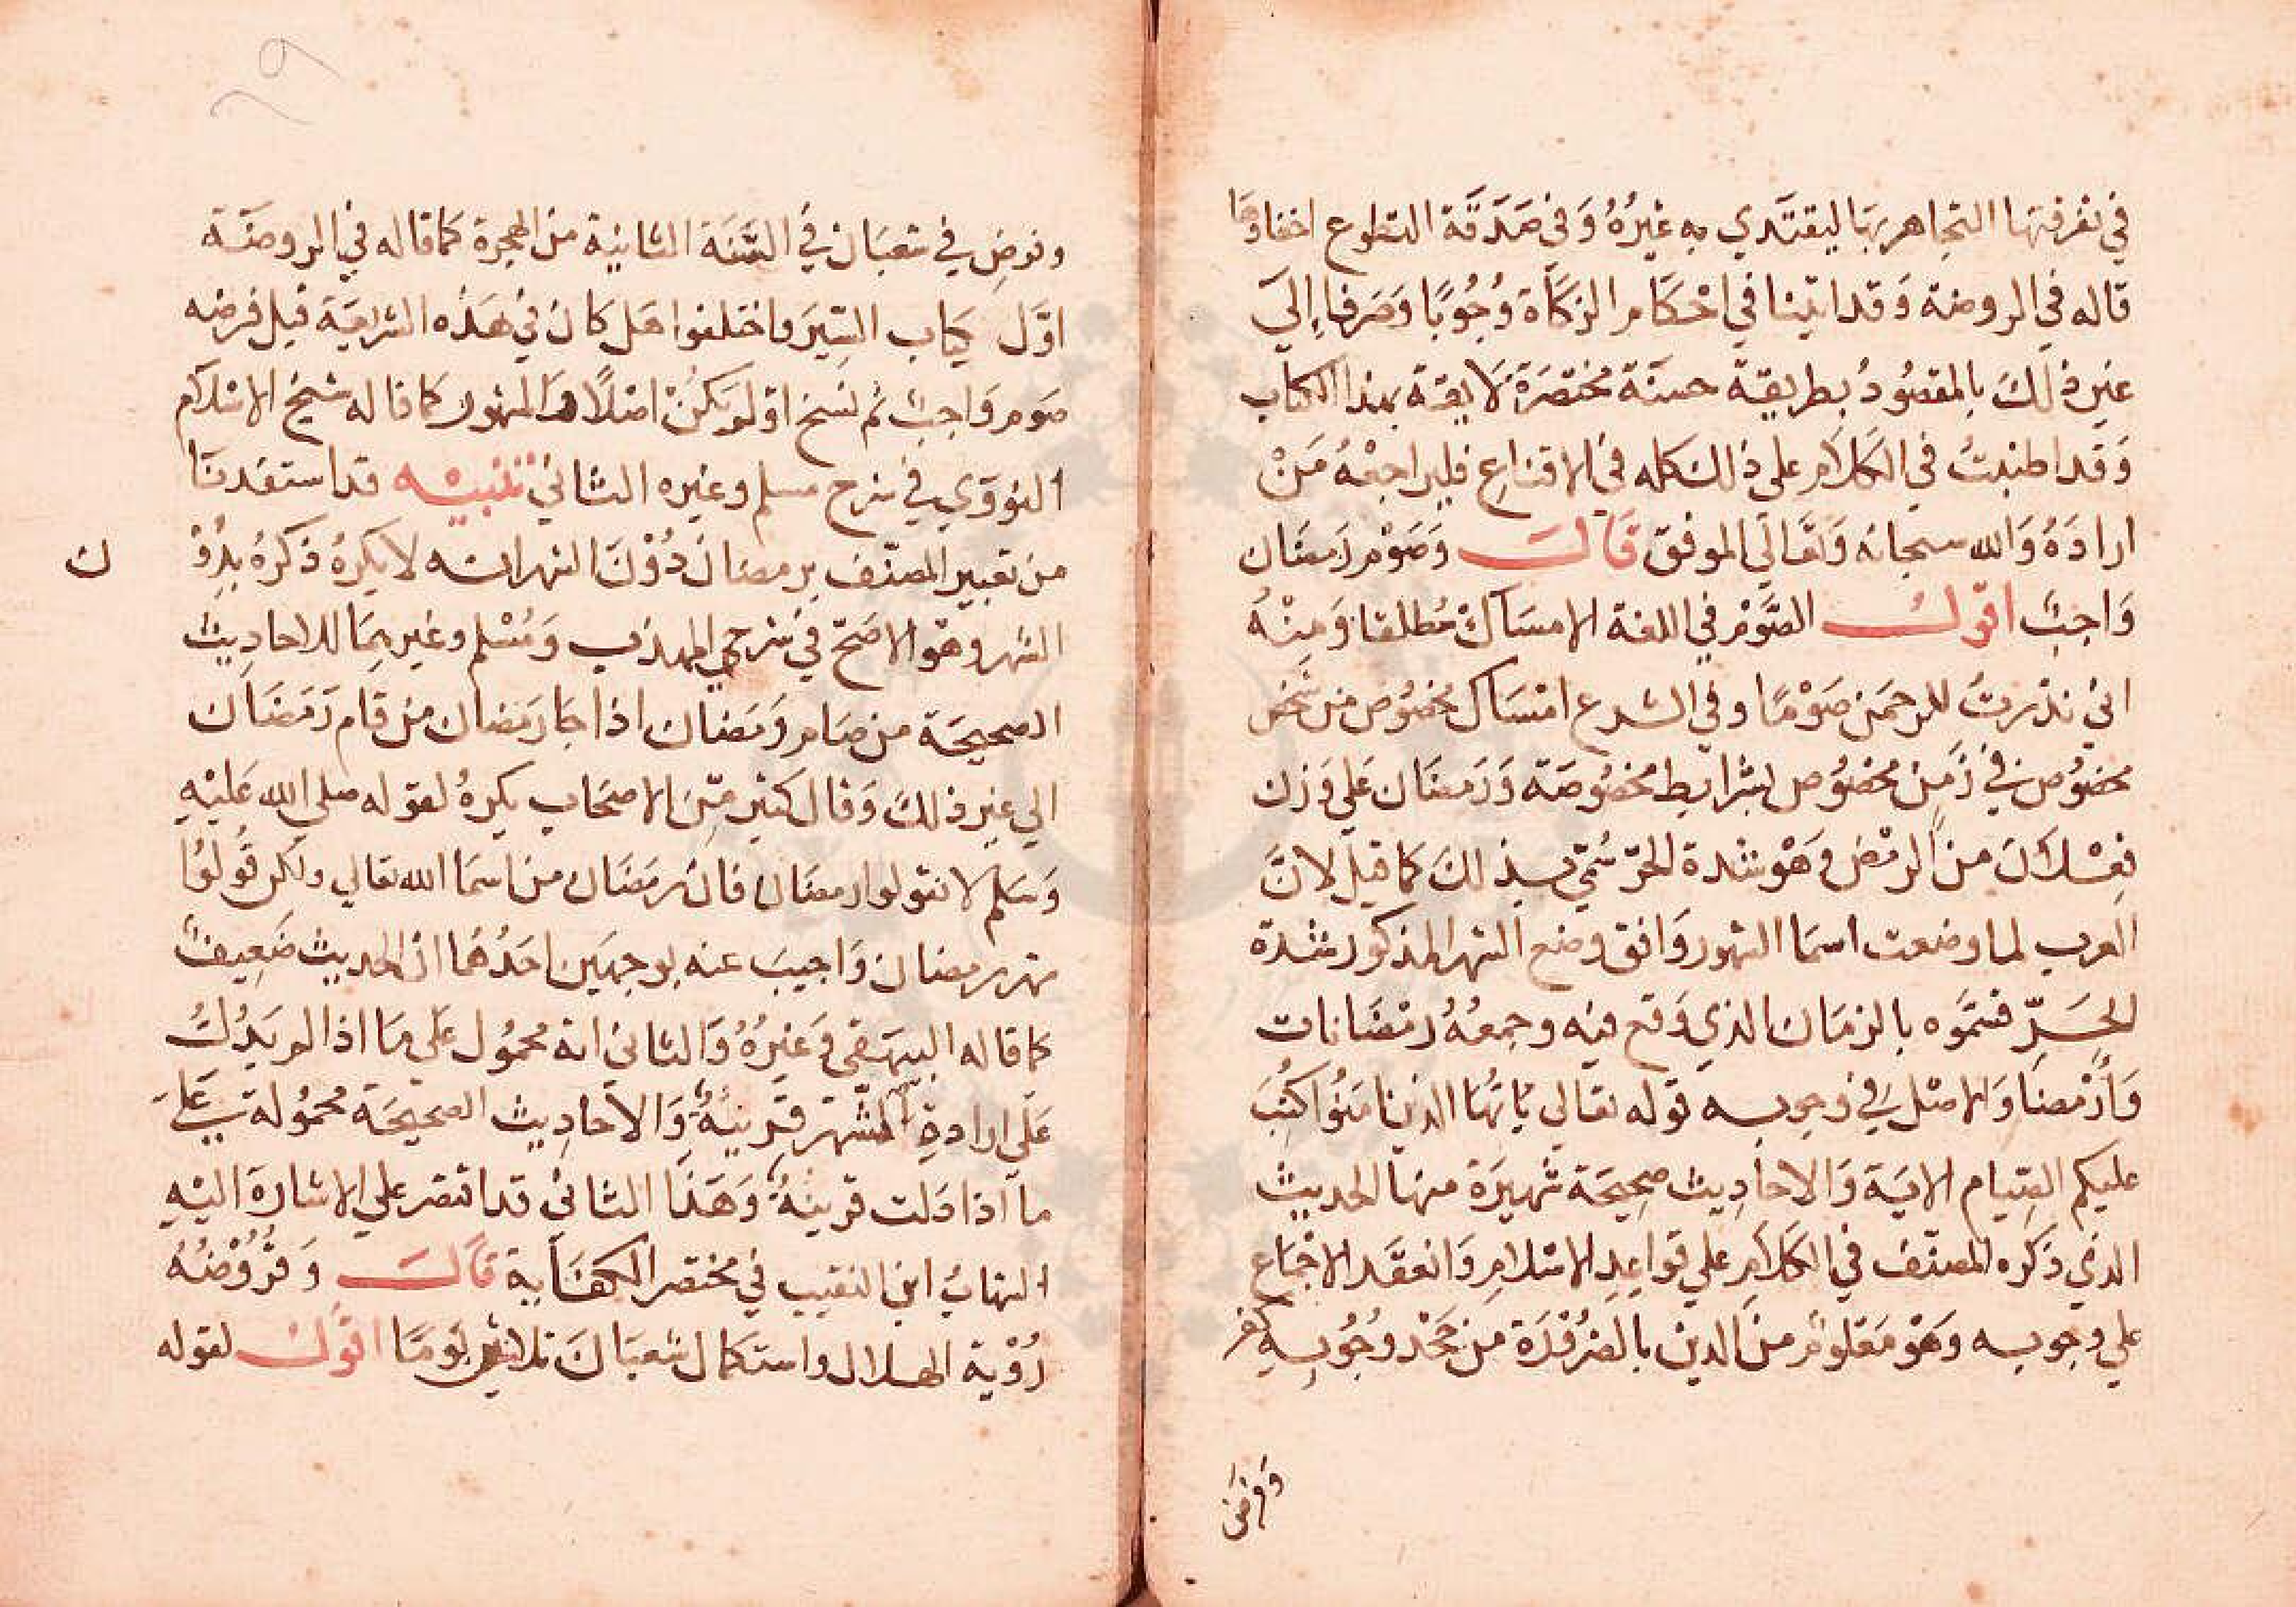 في تفرقتها التجاهر بها ليقتدي به غيرُهُ وَفي صَدَقَة التطوع اخفاوها
قاله في الروضة وَقد اتينا في احْكام الزكَاة وُجُوبًا وَصَرفا إليَ
غير ذلكَ بالمقصُودُ بطريقة حسنَة مختصَرَة لَايقة بهذا الكتاب
وَقد اطنبتُ في الكلام علي ذلك كله في الاقناعِ فليراجعْهُ مَنْ
ارادَهُ وَالله سبحانه وَتعَالي الموفق قَالَ وَصَوْم رَمضَان
وَاجِبٌ اقول الصَّوْمُ في اللغة الامسَاك مُطلقا وَمِنْهُ
اني نذرتُ للرحمَن صَوْمًا وفي الشرع امْسَاك مخصُوص من شخصٍ
مخصُوص في زَمن مخصُوص بشرايط مخصُوصَة وَرَمضَان عَلي وَزن
فِعْلَان منَ الرمْض وَهْو شدة الحرّ سُمّي بذلكَ كما قيل لانَّ
العرب لما وضعت اسمَا الشهور وَافق وضع الشهر المذكور شدة
الحَرِّ فسَمَّوه بالزمَان الذي وَقع فيه وجمعُهُ رمْضَانات
وَأرْمضا وَالاصْل في وجوبه قوله تعَالي يَايّهَا الذين امَنُوا كتِبَ
عليكم الصِّيام الايَة وَالاحاديث صحِيحَة شهيرَة منها الحديث
الذي ذكَره المصنّف في الكلام علي قواعِدِ الاسْلامِ وَانعقَد الاجْمَاع
علي وجوبه وَهْو مَعْلومٌ منَ الدين بالضرُورَة من جَحْد وجُوبِهِ كفر
وفرض
وفرضِ في شعبَان في السَّنَة الثانية منَ الهجرة كما قاله في الروضَة
اوّل كتاب السِّيَر واختلفوا هَل كان في هَذه الشريعَة قبل فرضه
صَوم وَاجبٌ ثم نسخ اوْ لم يَكنْ اصْلًا وَالمشهور كما قاله شيخ الاسْلام
النوَوَي في شرح مسلم وغيره الثاني تنبيْه قد استفدنَا
من تعبير المصنّف برمضان دُوْنَ الشهر انه لا يكرهُ ذكرهُ بدُوْ
ن
الشهر وهو الاصَحّ في شرحي المهذب وَمُسْلم وغيرهِمَا للاحاديث
الصحيحَة من صَام رَمَضان اذا جا رَمضان من قام رَمَضَان
الي غير ذلكَ وَقال كثير مِّن الاصحَاب يكرهُ لقوله صلي الله عَليْهِ
وَسَلم لا تقولوا رمضَان فان رَمَضَان من اسمَا الله تعَالي ولكن قُولوُا
شهر رمضان وَاجيبَ عنه بوجهَين احَدُهُمَا ان الحديث ضَعِيفٌ
كما قاله البيهَقي وَغيرُهُ وَالثاني انه محمُول عَلي مَا اذا لم يَدُلّ
عَلي ارادةِ الشهر قَرينَةٌ وَالاحَاديث الصحيحَة محمُولة عَلي
ما اذا دَلت قرينةٌ وَهَذا الثاني قد اقتصَر علي الاشارة اليْهِ
الشهابُ ابن النقيب في مختصر الكفَاية قَالَ وَفرُوْضُهُ
رُؤية الهلال واستكمال شعبَانَ ثلاثين يومًا اقول لقوله